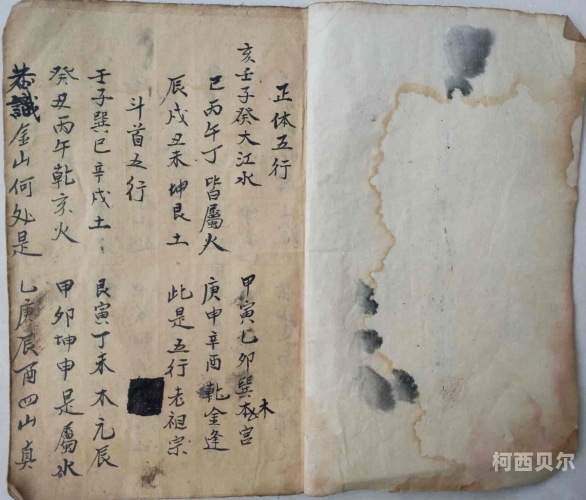 正体五行
亥壬子癸大江水 甲寅乙卯巽木宫
巳丙午丁皆屬火 庚申辛酉乹金逢
辰戌丑未坤艮土 此是五行老祖宗
斗首五行
壬子巽巳辛戌土 艮寅丁未木元辰
癸丑丙午乾亥火 甲卯坤申是屬水
識金山何处是 乙庚辰酉四山真
柯西贝尔